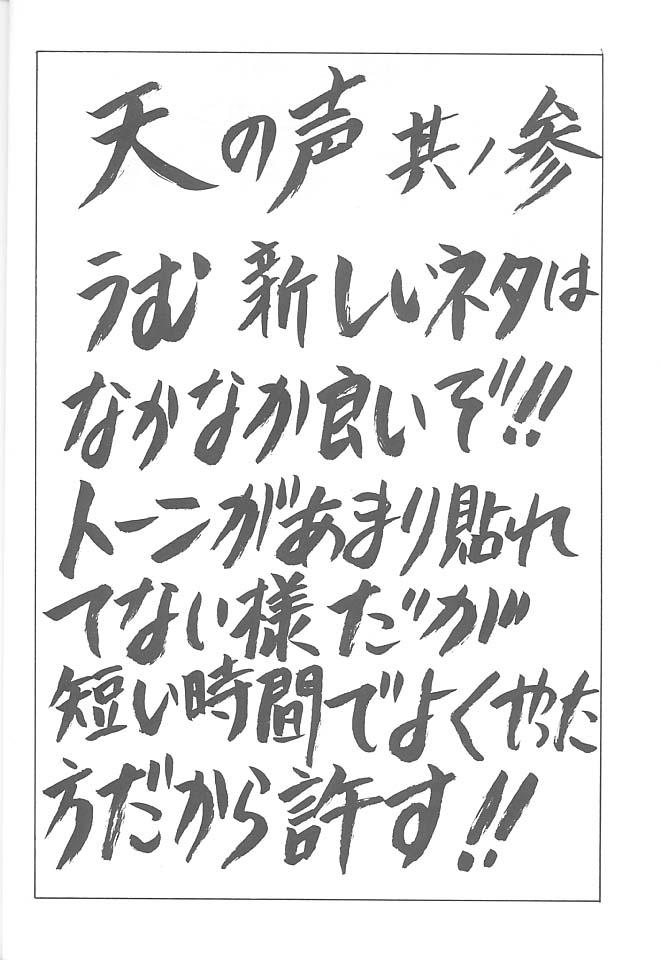 天の声 其ノ参
うむ 新しいネタは
なかなか良いぞ!!
トーンがあまり貼れ
てない様だが
短い時間でよくやった
方だから許す!!